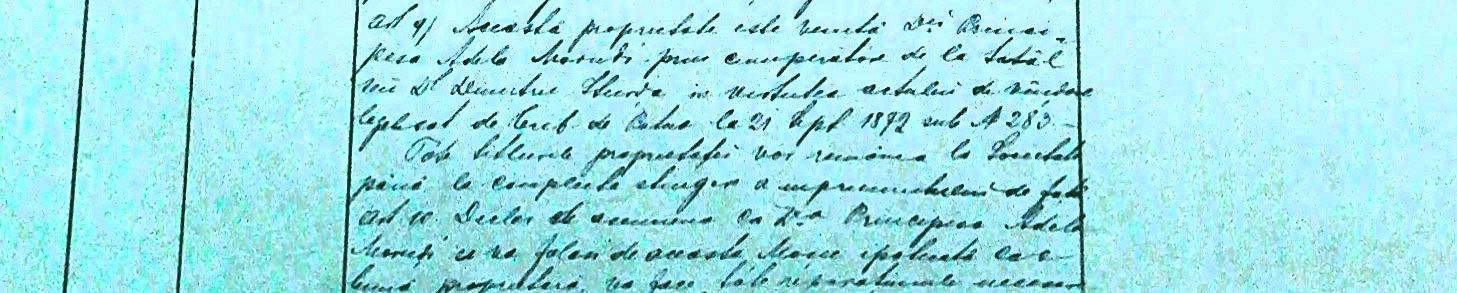 art 9) Acésta proprietate este venită Dnei Princi-
pesa Adela Moruzi prin cumperatóre de la tatăl
seu Dl Dimitrie Sturza in virtutea actului de vîndare
legalisat de Trib. de Petra la 21 Sept 1872 sub N 283.-
Tóte titlurile proprietăței vor remânea la Societate
pănă la completa stingere a imprumutului de față
art 10. Declar de asemenea că Dna Principesa Adela
Moruzi se va folosi de acésta Moșie ipotecată ca o
bună proprietară, va face tóte reparațiunile necesare